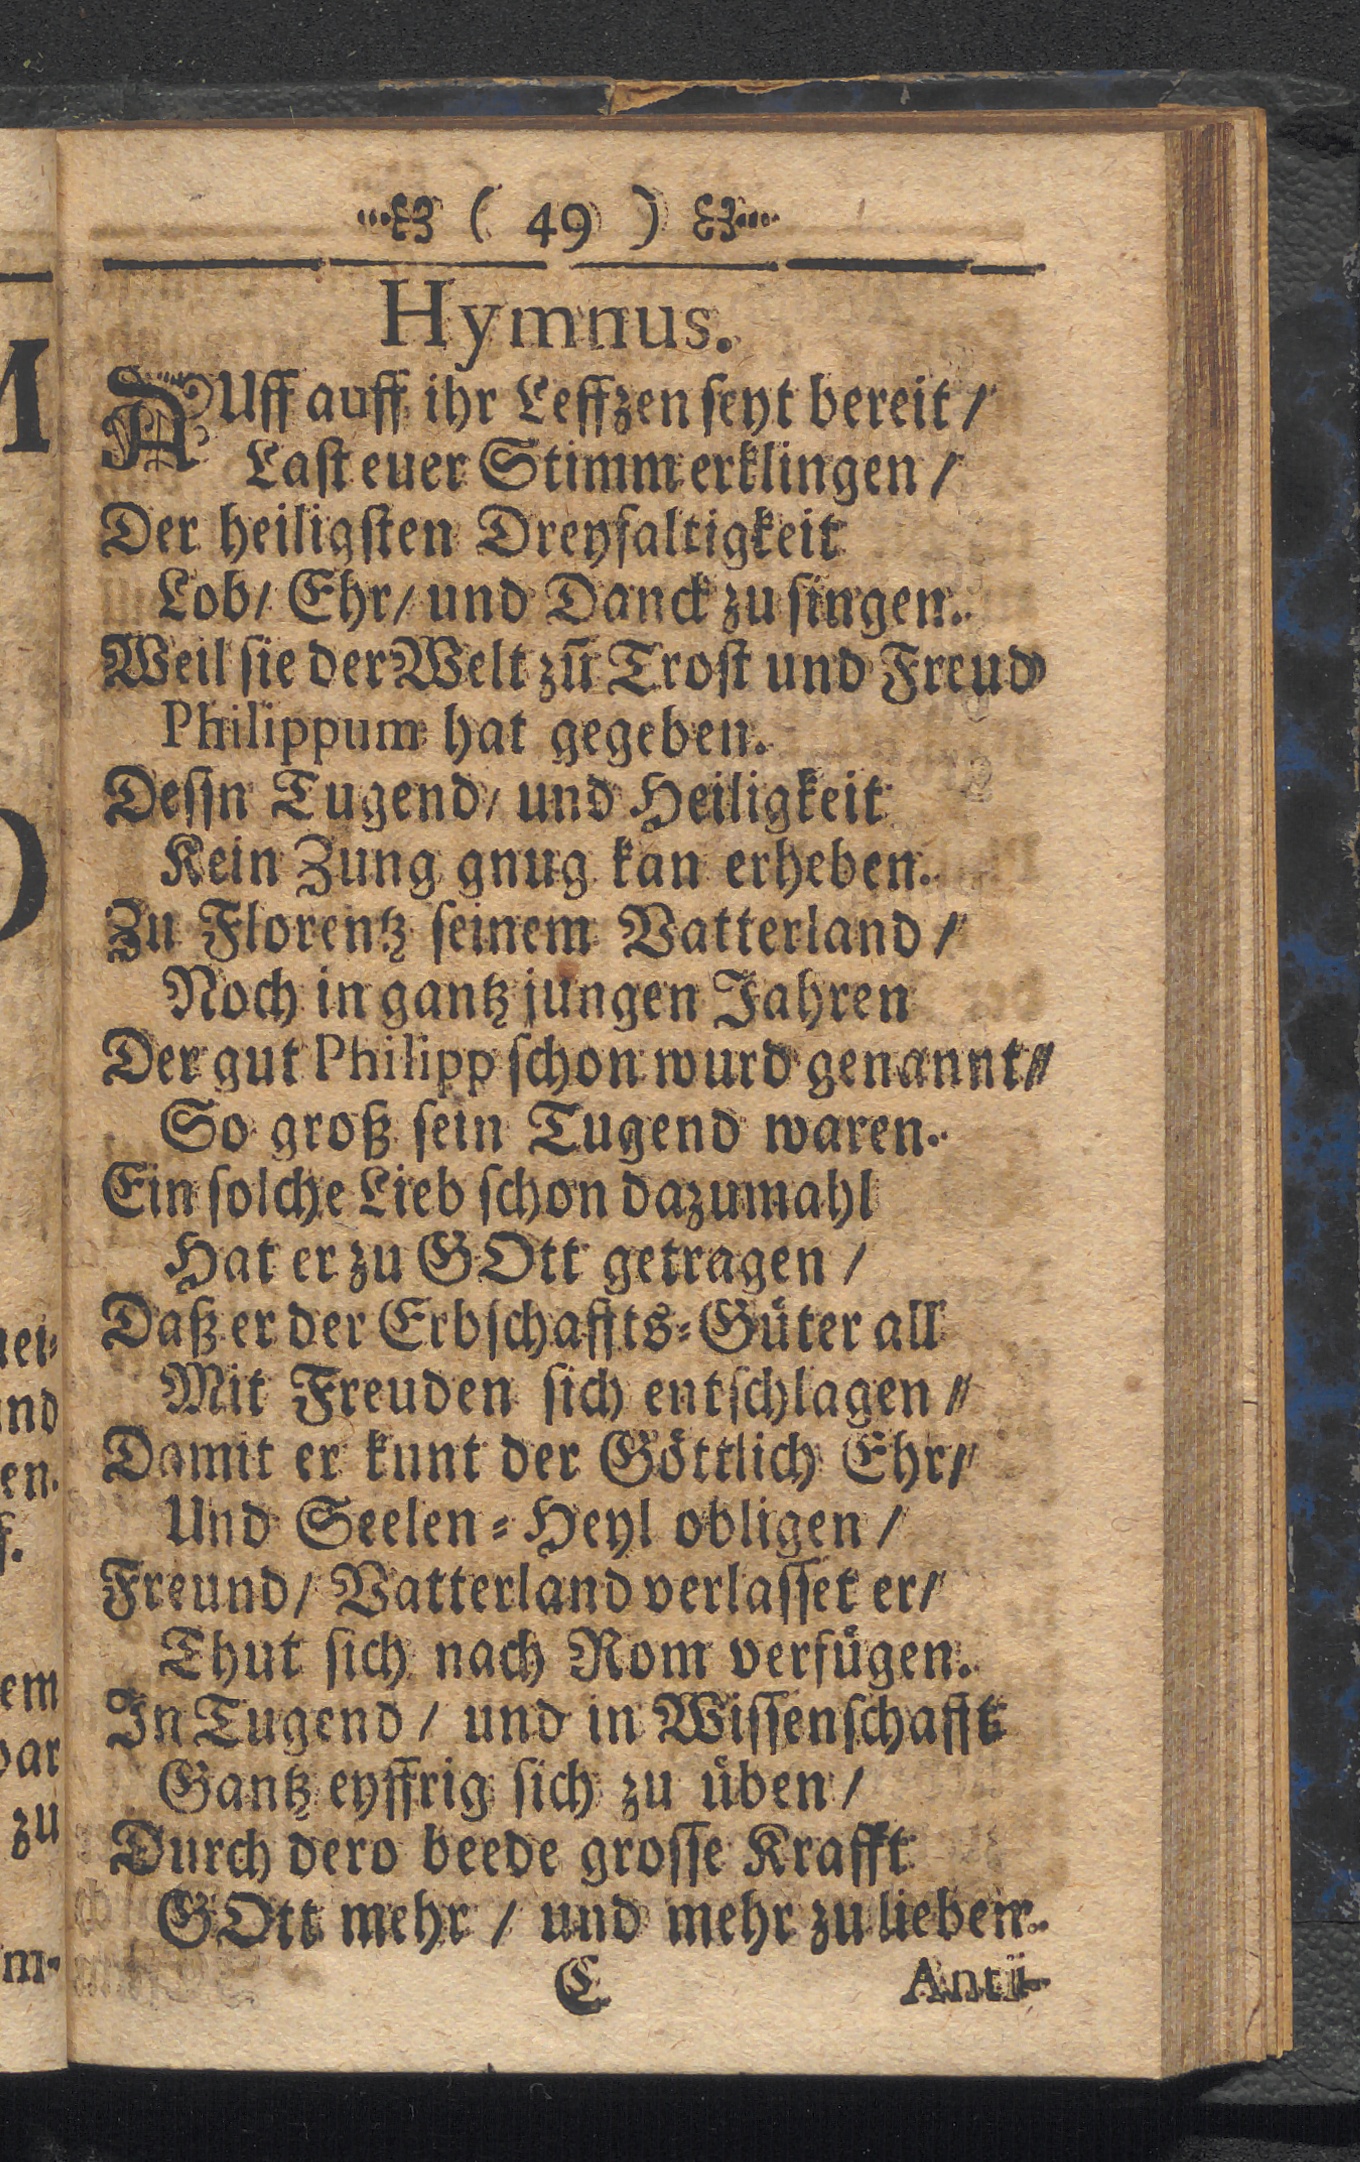 ( 49 )
Hymnus.
AUff auff ihr Leffzen seyt bereit /
Last euer Stimm erklingen /
Der heiligsten Dreyfaltigkeit
Lob / Ehr / und Danck zu singen.
Weil sie der Welt zū Trost und Freud
Philippum hat gegeben.
Dessn Tugend / und Heiligkeit
Kein Zung gnug kan erheben.
Zu Florentz seinem Vatterland /
Noch in gantz jungen Jahren
Der gut Philipp schon wurd genannt /
So groß sein Tugend waren.
Ein solche Lieb schon dazumahl
Hat er zu GOtt getragen /
Daß er der Erbschaffts-Güter all
Mit Freuden sich entschlagen /
Damit er kunt der Göttlich Ehr /
Und Seelen-Heyl obligen /
Freund / Vatterland verlasset er /
Thut sich nach Rom verfügen.
In Tugend / und in Wissenschafft
Gantz eyffrig sich zu üben /
Durch dero beede grosse Krafft
GOtt mehr / und mehr zu lieben.
C Anti-